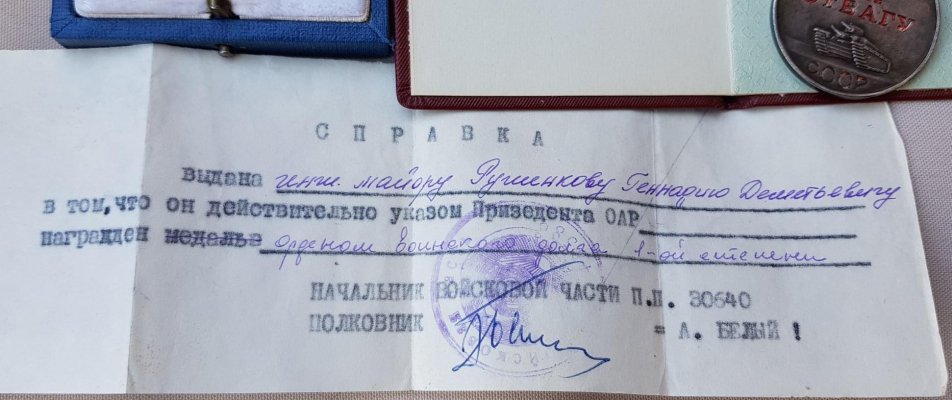 ОТВАГУ
СССР
СПРАВКА
Выдана инж. майору Руженкову Геннадию Дементьевичу
в том,что он действительно указом Призедента ОАР
награжден медалью орденом воинского долга 1-ой степени
НАЧАЛЬНИК ВОЙСКОВОЙ ЧАСТИ П.П. 30640
ПОЛКОВНИК = А. БЕЛЫЙ !